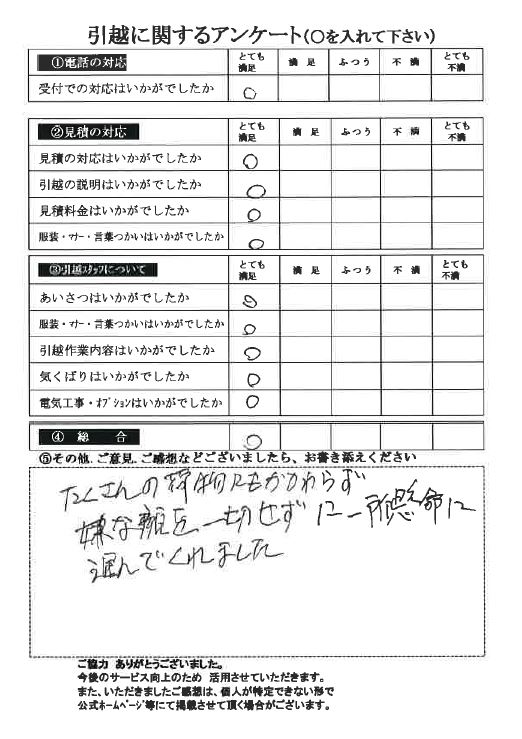 引越に関するアンケート(〇を入れて下さい)
①電話の対応 とても満足 満足 ふつう 不満 とても不満
受付での対応はいかがでしたか ○
②見積の対応 とても満足 満足 ふつう 不満 とても不満
見積の対応はいかがでしたか ○
引越の説明はいかがでしたか ○
見積料金はいかがでしたか ○
服装・マナー・言葉つかいはいかがでしたか ○
③引越スタッフについて とても満足 満足 ふつう 不満 とても不満
あいさつはいかがでしたか ○
服装・マナー・言葉つかいはいかがでしたか ○
引越作業内容はいかがでしたか ○
気くばりはいかがでしたか ○
電気工事・オプションはいかがでしたか ○
④ 総 合 ○
⑤その他、ご意見、ご感想などございましたら、お書き添えください
たくさんの荷物にもかかわらず
嫌な顔を一切せずに一所懸命に
運んでくれました
ご協力 ありがとうございました。
今後のサービス向上のため 活用させていただきます。
また、いただきましたご感想は、個人が特定できない形で
公式ホームページ等にて掲載させて頂く場合がございます。